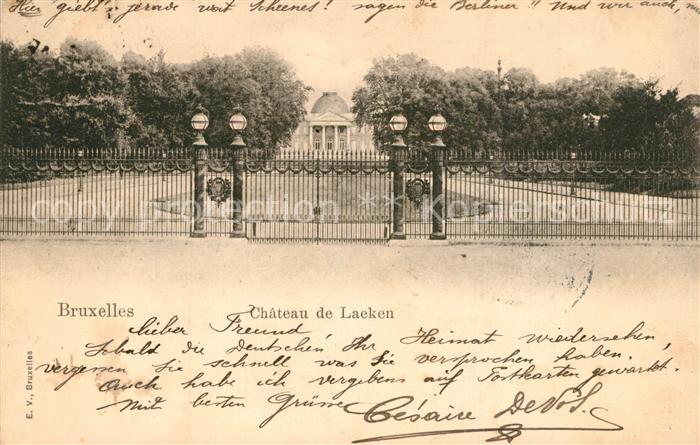 Hier giebt's jerade wat Scheenes! sagen die Berliner!! Und wir auch,
copyright Kopierschutz
Bruxelles Château de Laeken
lieber Freund
Sobald die Deutschen Ihr Heimat wiedersehen,
vergessen Sie schnell was Sie versprochen haben.
Auch habe ich vergebens auf Postkarten gewartet.
Mit besten Grüsse Césaire DeVos.
E. V., Bruxelles